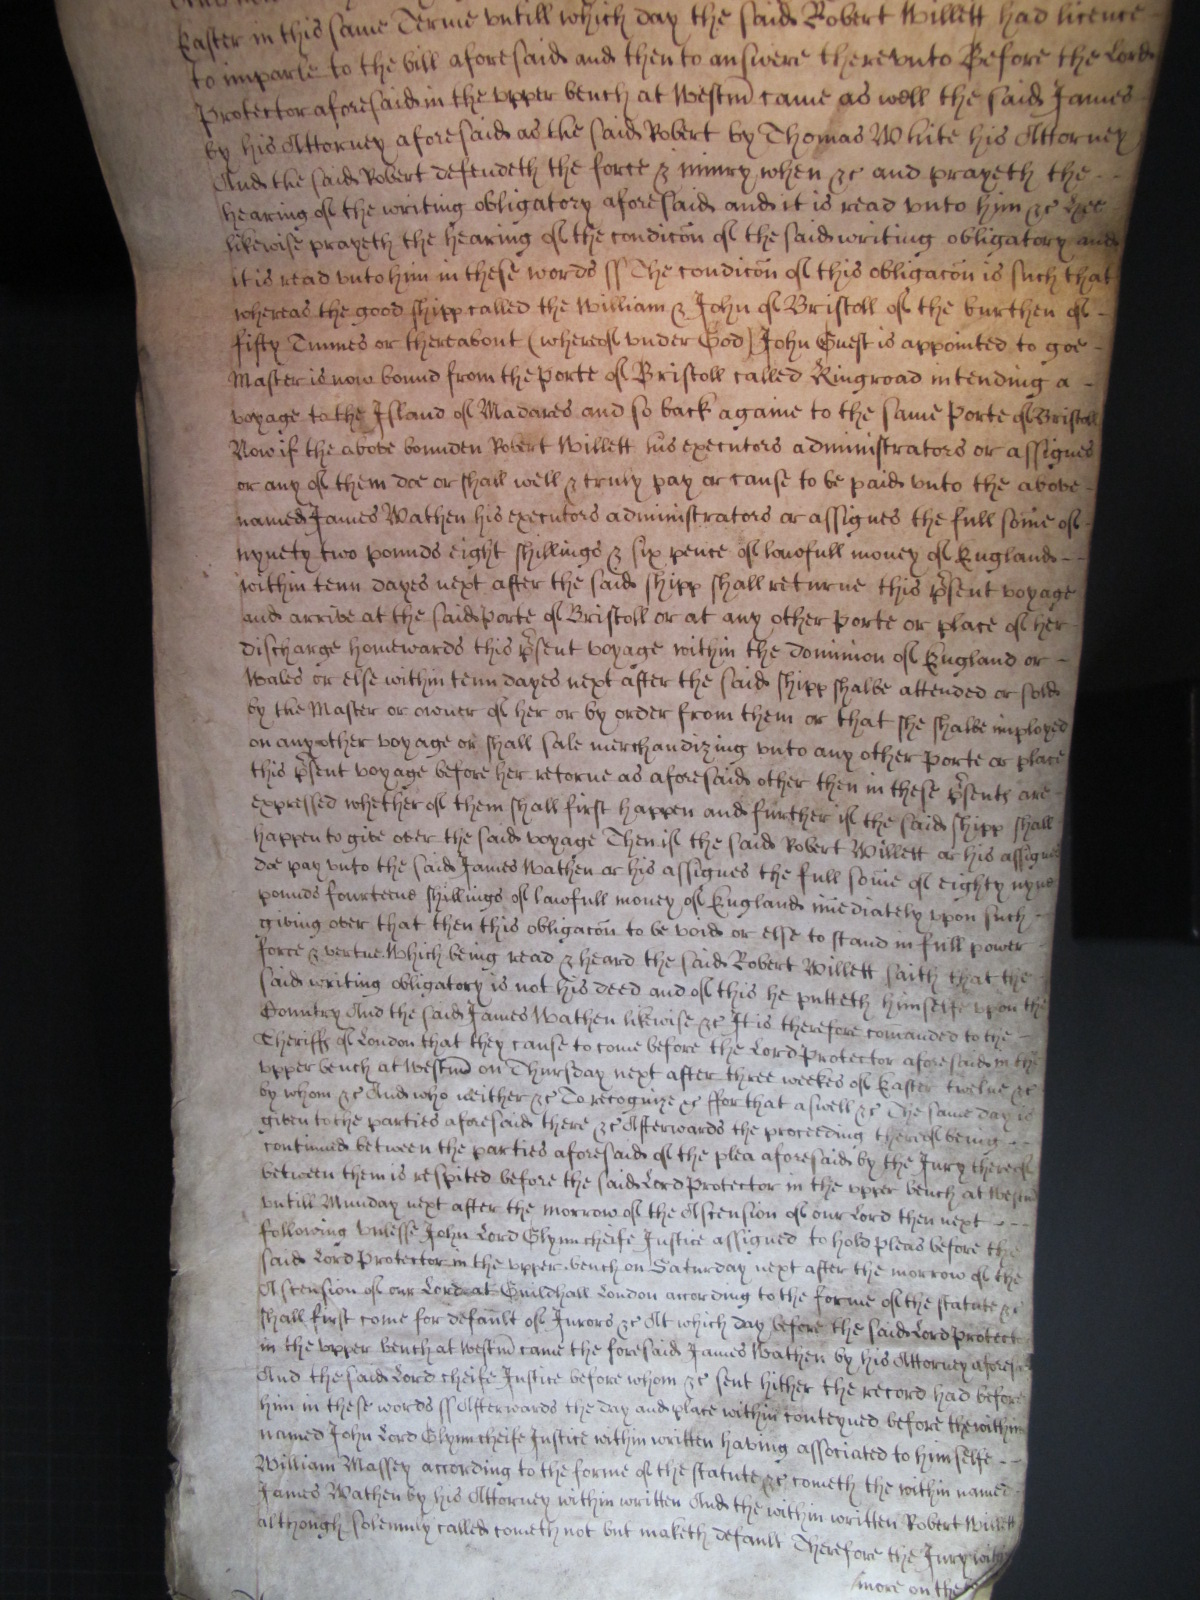 Easter in this same Terme vntill which day the said Robert Willett had licence
to imparle to the bill aforesaid and then to answere therevnto Before the Lord
Protector aforesaid in the vpper bench at Westm came as well the said James
by his Attorney aforesaid as the said Robert by Thomas White his Attorney
And the said Robert defendeth the force & iniury when &c and prayeth the
hearing of the writing obligatory aforesaid and it is read vnto him &c hee
likewise prayeth the hearing of the condicōn of the said writing obligatory and
it is read vnto him in these words ss The condicōn of this obligacōn is such that
whereas the good shipp called the William & John of Bristoll of the burthen of
fifty Tunnes or thereabout (whereof vnder God) John Guest is appointed to goe
Master is now bound from the Porte of Bristoll called Kingroad intending a
voyage to the Island of Madares and so back againe to the same Porte of Bristoll
Now if the above bounden Robert Willett his executors administrators or assignes
or any of them doe or shall well & truly pay or cause to be paid vnto the above
named James Wathen his executors administrators or assignes the full some of
nynety two pounds eight shillings & six pence of lawfull money of England
within tenn dayes next after the said shipp shall returne this p̄sent voyage
and arrive at the said Porte of Bristoll or at any other Porte or place of her
discharge homewards this p̄sent voyage within the dominion of England or
Wales or else within tenn dayes next after the said shipp shalbe attended or sold
by the Master or owner of her or by order from them or that she shalbe imployed
on any other voyage or shall sale merchandizing vnto any other Porte or place
this p̄sent voyage before her retorne as aforesaid other then in these p̄sents are
expressed whether of them shall first happen and further if the said shipp shall
happen to give over the said voyage Then if the said Robert Willett or his assignes
doe pay vnto the said James Wathen or his assignes the full some of eighty nyne
pounds fourteene shillings of lawfull money of England im̄ediately vpon such
giving over that then this obligacōn to be void or else to stand in full power
force & vertue. Which being read & heard the said Robert Willett saith that the
said writing obligatory is not his deed and of this he putteth himselfe vpon the
Country And the said James Wathen likewise &c It is therefore comanded to the
Sheriffs of London that they cause to come before the Lord Protector aforesaid in the
vpper bench at Westm on Thursday next after three weekes of Easter twelue &c
by whom &c And who neither &c To recognize &c ffor that aswell &c The same day is
given to the parties aforesaid there &c Afterwards the proceeding thereof being
continued between the parties aforesaid of the plea aforesaid by the Jury thereof
between them is respited before the said Lord Protector in the vpper bench at Westm
vntill Munday next after the morrow of the Ascension of our Lord then next
following vnlesse John Lord Glynn cheife Justice assigned to hold pleas before the
said Lord Protector in the vpper bench on Saturday next after the morrow of the
Ascension of our Lord at Guildhall London according to the forme of the statute &c
shall first come for default of Jurors &c At which day before the said Lord Protector
in the vpper bench at Westm came the foresaid James Wathen by his Attorney aforesaid
And the said Lord cheife Justice before whom &c sent hither the record had before
him in these words ss Afterwards the day and place within conteyned before the within
named John Lord Glynn cheife Justice within written having associated to himselfe
William Massey according to the forme of the statute &c cometh the within named
James Wathen by his Attorney within written And the within written Robert Willett
although solemnly called cometh not but maketh default Therefore the Jury
more on the